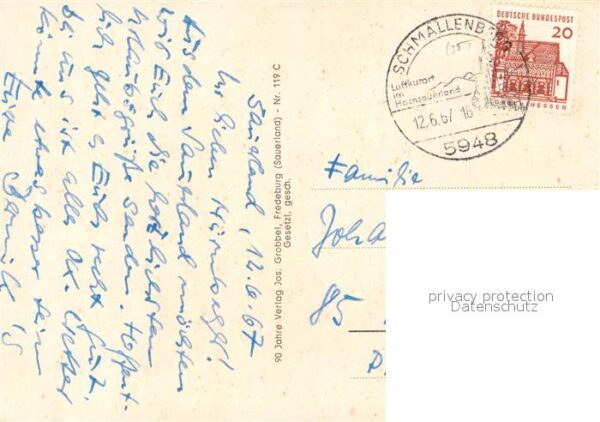 Sauerland, 12.6.67
Ihr lieben Nürnberger!
Aus dem Sauerland möchten
wir Euch die herzlichsten
Urlaubsgrüße senden. Hoffent-
lich geht es Euch recht gut.
Bei uns ist alles ok. Wetter
könnte etwas besser sein
Eure
90 Jahre Verlag Jos. Grobbel, Fredeburg (Sauerland) - Nr. 119 C
Gesetzl. gesch.
SCHMALLENB
Luftkurort
im
Hochsauerland
12.6.67 16
5948
DEUTSCHE BUNDESPOST
20
HESSEN
Familie
Joha
85
privacy protection
Datenschutz